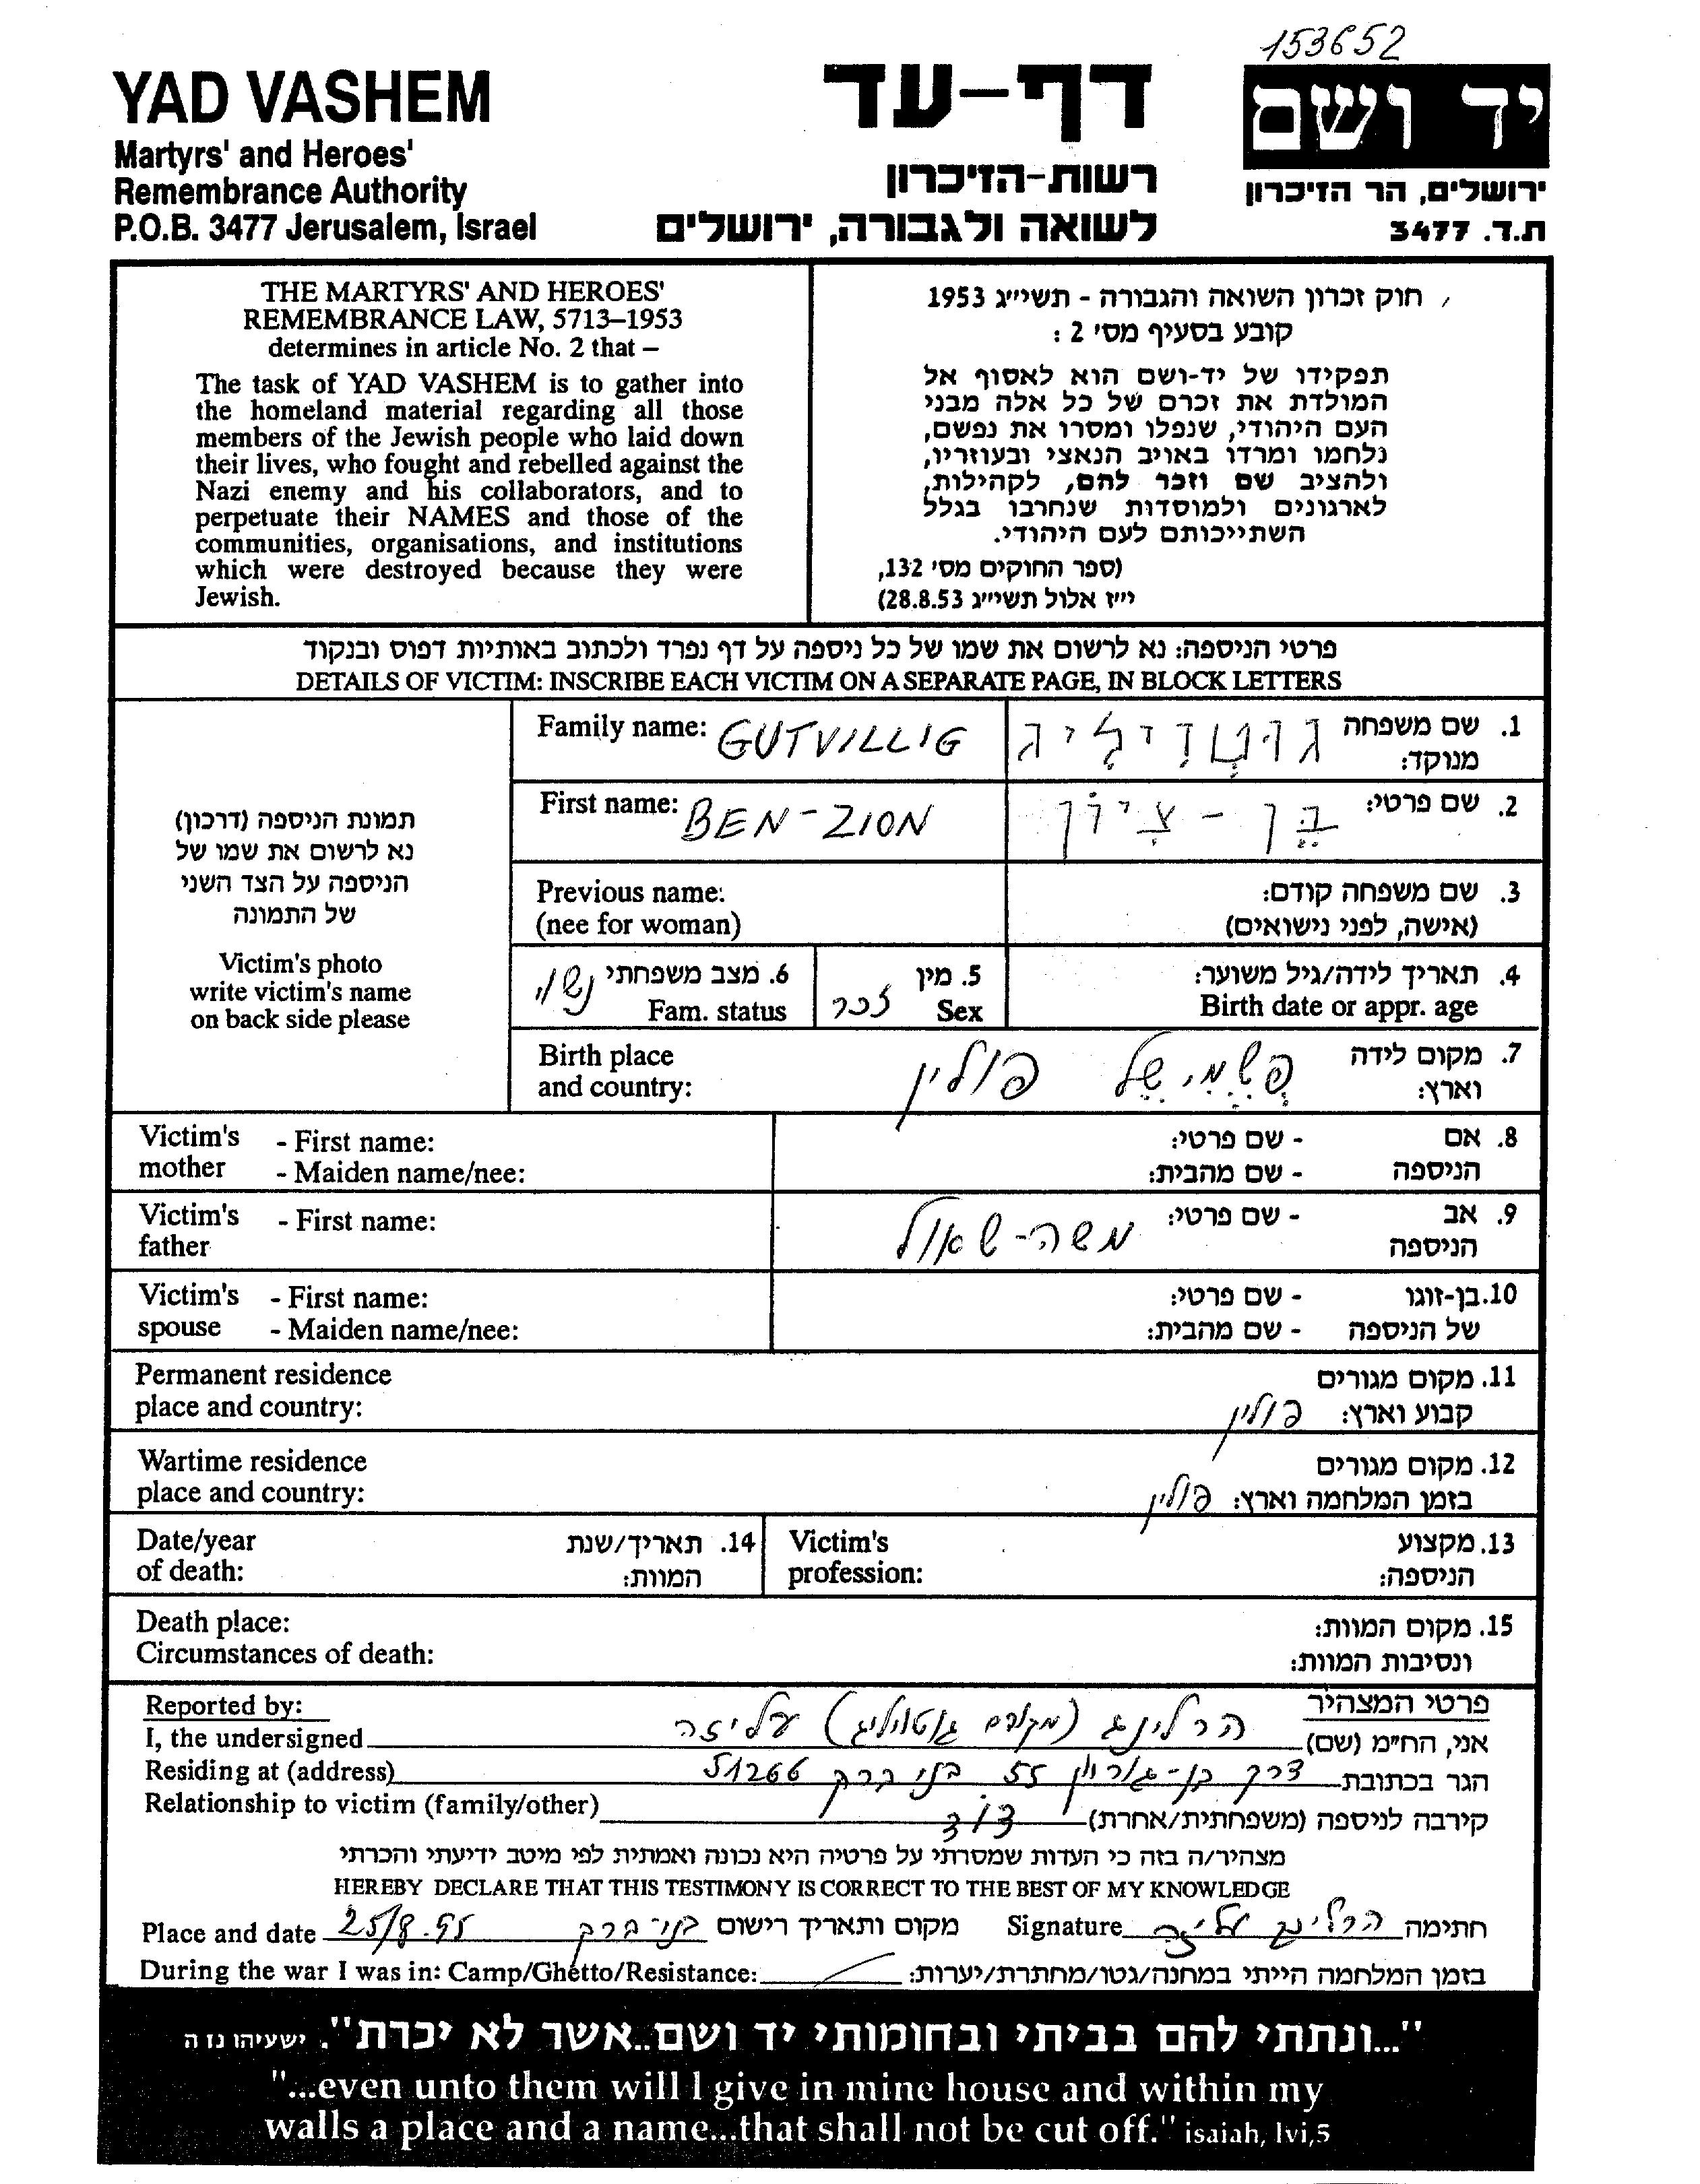 153652
YAD VASHEM
Martyrs' and Heroes'
Remembrance Authority
P.O.B. 3477 Jerusalem, Israel
דף-עד
רשות-הזיכרון
לשואה ולגבורה, ירושלים
יד ושם
ירושלים, הר הזיכרון
ת.ד. 3477
THE MARTYRS' AND HEROES'
REMEMBRANCE LAW, 5713–1953
determines in article No. 2 that –
The task of YAD VASHEM is to gather into
the homeland material regarding all those
members of the Jewish people who laid down
their lives, who fought and rebelled against the
Nazi enemy and his collaborators, and to
perpetuate their NAMES and those of the
communities, organisations, and institutions
which were destroyed because they were
Jewish.
חוק זכרון השואה והגבורה - תשי״ג 1953
קובע בסעיף מס׳ 2 :
תפקידו של יד-ושם הוא לאסוף אל
המולדת את זכרם של כל אלה מבני
העם היהודי, שנפלו ומסרו את נפשם,
נלחמו ומרדו באויב הנאצי ובעוזריו,
ולהציב שם וזכר להם, לקהילות,
לארגונים ולמוסדות שנחרבו בגלל
השתייכותם לעם היהודי.
(ספר החוקים מס׳ 132,
י״ז אלול תשי״ג 28.8.53)
פרטי הניספה: נא לרשום את שמו של כל ניספה על דף נפרד ולכתוב באותיות דפוס ובנקוד
DETAILS OF VICTIM: INSCRIBE EACH VICTIM ON A SEPARATE PAGE, IN BLOCK LETTERS
תמונת הניספה (דרכון)
נא לרשום את שמו של
הניספה על הצד השני
של התמונה
Victim's photo
write victim's name
on back side please
Family name: GUTVILLIG גוטויליג 1. שם משפחה
מנוקד:
First name: BEN-ZION בן-ציון 2. שם פרטי:
Previous name: 3. שם משפחה קודם:
(nee for woman) (אישה, לפני נישואים)
6. מצב משפחתי נשוי 5. מין זכר 4. תאריך לידה/גיל משוער:
Fam. status Sex Birth date or appr. age
Birth place פשמישל פולין 7. מקום לידה
and country: וארץ:
Victim's - First name: - שם פרטי: 8. אם
mother - Maiden name/nee: - שם מהבית: הניספה
Victim's - First name: משה-שאול - שם פרטי: 9. אב
father הניספה
Victim's - First name: - שם פרטי: 10. בן-זוגו
spouse - Maiden name/nee: - שם מהבית: של הניספה
Permanent residence 11. מקום מגורים
place and country: פולין קבוע וארץ:
Wartime residence 12. מקום מגורים
place and country: פולין בזמן המלחמה וארץ:
Date/year 14. תאריך/שנת Victim's 13. מקצוע
of death: המוות: profession: הניספה:
Death place: 15. מקום המוות:
Circumstances of death: ונסיבות המוות:
Reported by: פרטי המצהיר
I, the undersigned הרלינג (מקודם גוטויליג) עליזה אני, הח״מ (שם)
Residing at (address) דרך בן-גוריון 55 בני ברק 51266 הגר בכתובת
Relationship to victim (family/other) דוד קירבה לניספה (משפחתית/אחרת)
מצהיר/ה בזה כי העדות שמסרתי על פרטיה היא נכונה ואמתית לפי מיטב ידיעתי והכרתי
HEREBY DECLARE THAT THIS TESTIMONY IS CORRECT TO THE BEST OF MY KNOWLEDGE
Place and date 25/8.95 בני-ברק מקום ותאריך רישום Signature הרלינג עליזה חתימה
During the war I was in: Camp/Ghetto/Resistance: בזמן המלחמה הייתי במחנה/גטו/מחתרת/יערות:
"...ונתתי להם בביתי ובחומותי יד ושם..אשר לא יכרת". ישעיהו נז ה
"...even unto them will I give in mine house and within my
walls a place and a name...that shall not be cut off." isaiah, lvi,5